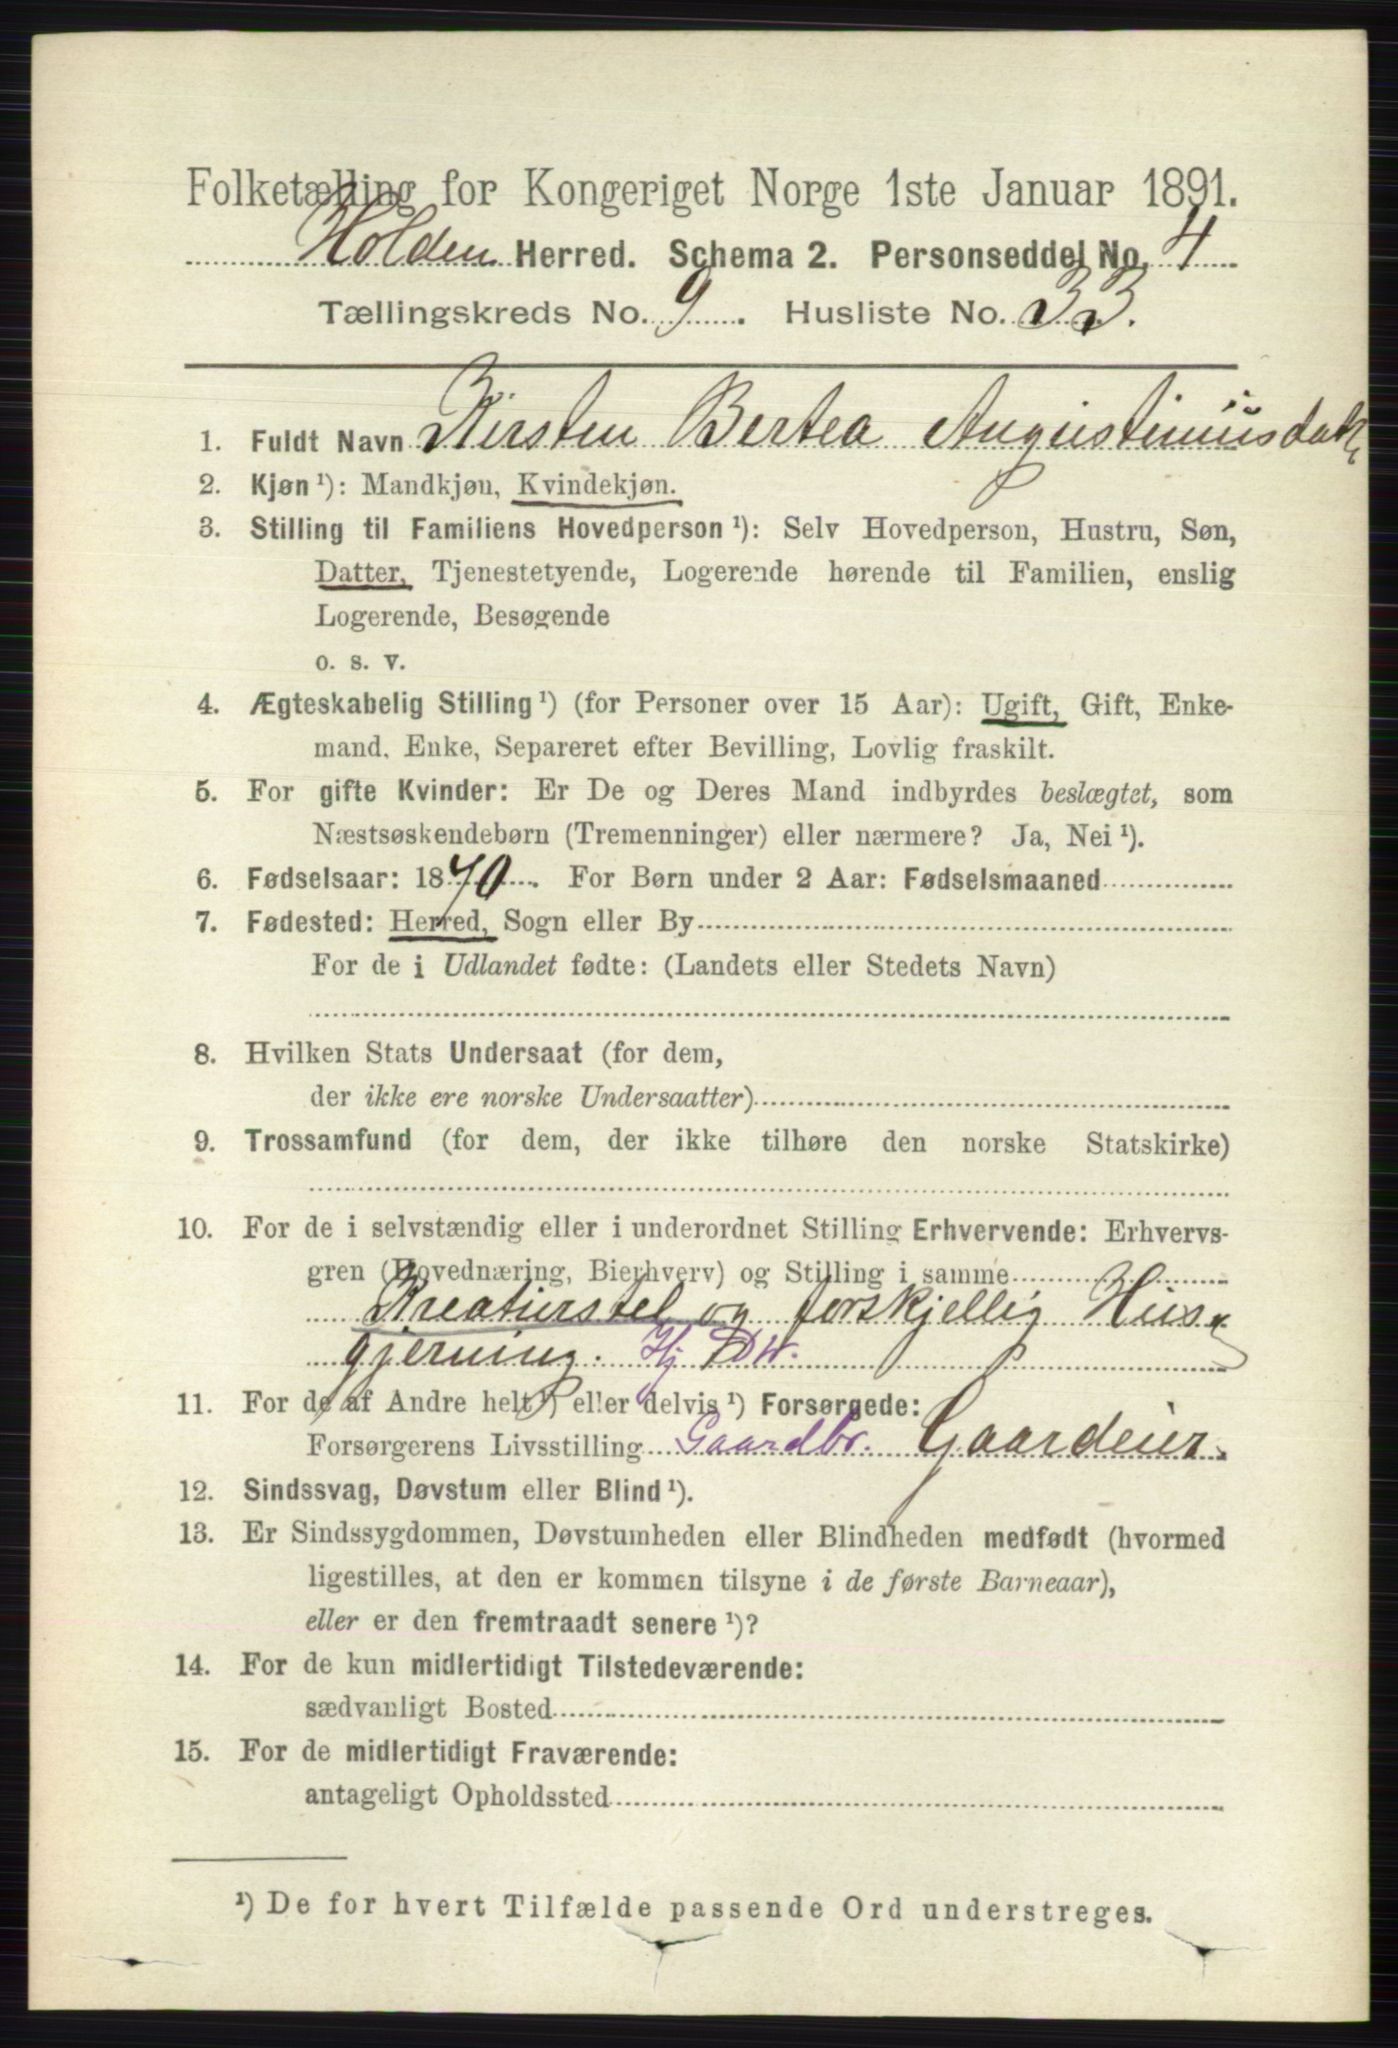 Folketælling for Kongeriget Norge 1ste Januar 1891.
Holden Herred. Schema 2. Personseddel No. 4
Tællingskreds No. 9. Husliste No. 33.
1. Fuldt Navn Kirsten Bertea Augustinusdatr
2. Kjøn ¹): Mandkjøn, Kvindekjøn.
3. Stilling til Familiens Hovedperson ¹): Selv Hovedperson, Hustru, Søn,
Datter, Tjenestetyende, Logerende hørende til Familien, enslig
Logerende, Besøgende
o. s. v.
4. Ægteskabelig Stilling ¹) (for Personer over 15 Aar): Ugift, Gift, Enke-
mand, Enke, Separeret efter Bevilling, Lovlig fraskilt.
5. For gifte Kvinder: Er De og Deres Mand indbyrdes beslægtet, som
Næstsøskendebørn (Tremenninger) eller nærmere? Ja, Nei ¹).
6. Fødselsaar: 1870. For Børn under 2 Aar: Fødselsmaaned
7. Fødested: Herred, Sogn eller By
For de i Udlandet fødte: (Landets eller Stedets Navn)
8. Hvilken Stats Undersaat (for dem,
der ikke ere norske Undersaatter)
9. Trossamfund (for dem, der ikke tilhøre den norske Statskirke)
10. For de i selvstændig eller i underordnet Stilling Erhvervende: Erhvervs-
gren (Hovednæring, Bierhverv) og Stilling i samme
Kreaturstel og forskjellig Hus-
gjerning. Hj DW.
11. For de af Andre helt ¹) eller delvis ¹) Forsørgede:
Forsørgerens Livsstilling Gaardbr. Gaardeier
12. Sindssvag, Døvstum eller Blind ¹).
13. Er Sindssygdommen, Døvstumheden eller Blindheden medfødt (hvormed
ligestilles, at den er kommen tilsyne i de første Barneaar),
eller er den fremtraadt senere ¹)?
14. For de kun midlertidigt Tilstedeværende:
sædvanligt Bosted
15. For de midlertidigt Fraværende:
antageligt Opholdssted
¹) De for hvert Tilfælde passende Ord understreges.